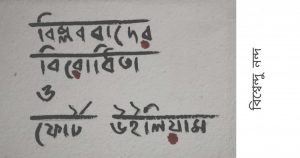 বিপ্লববাদের
বিরোধিতা
ও
ফোর্ট উইলিয়াম
বিশ্বেন্দু নন্দ